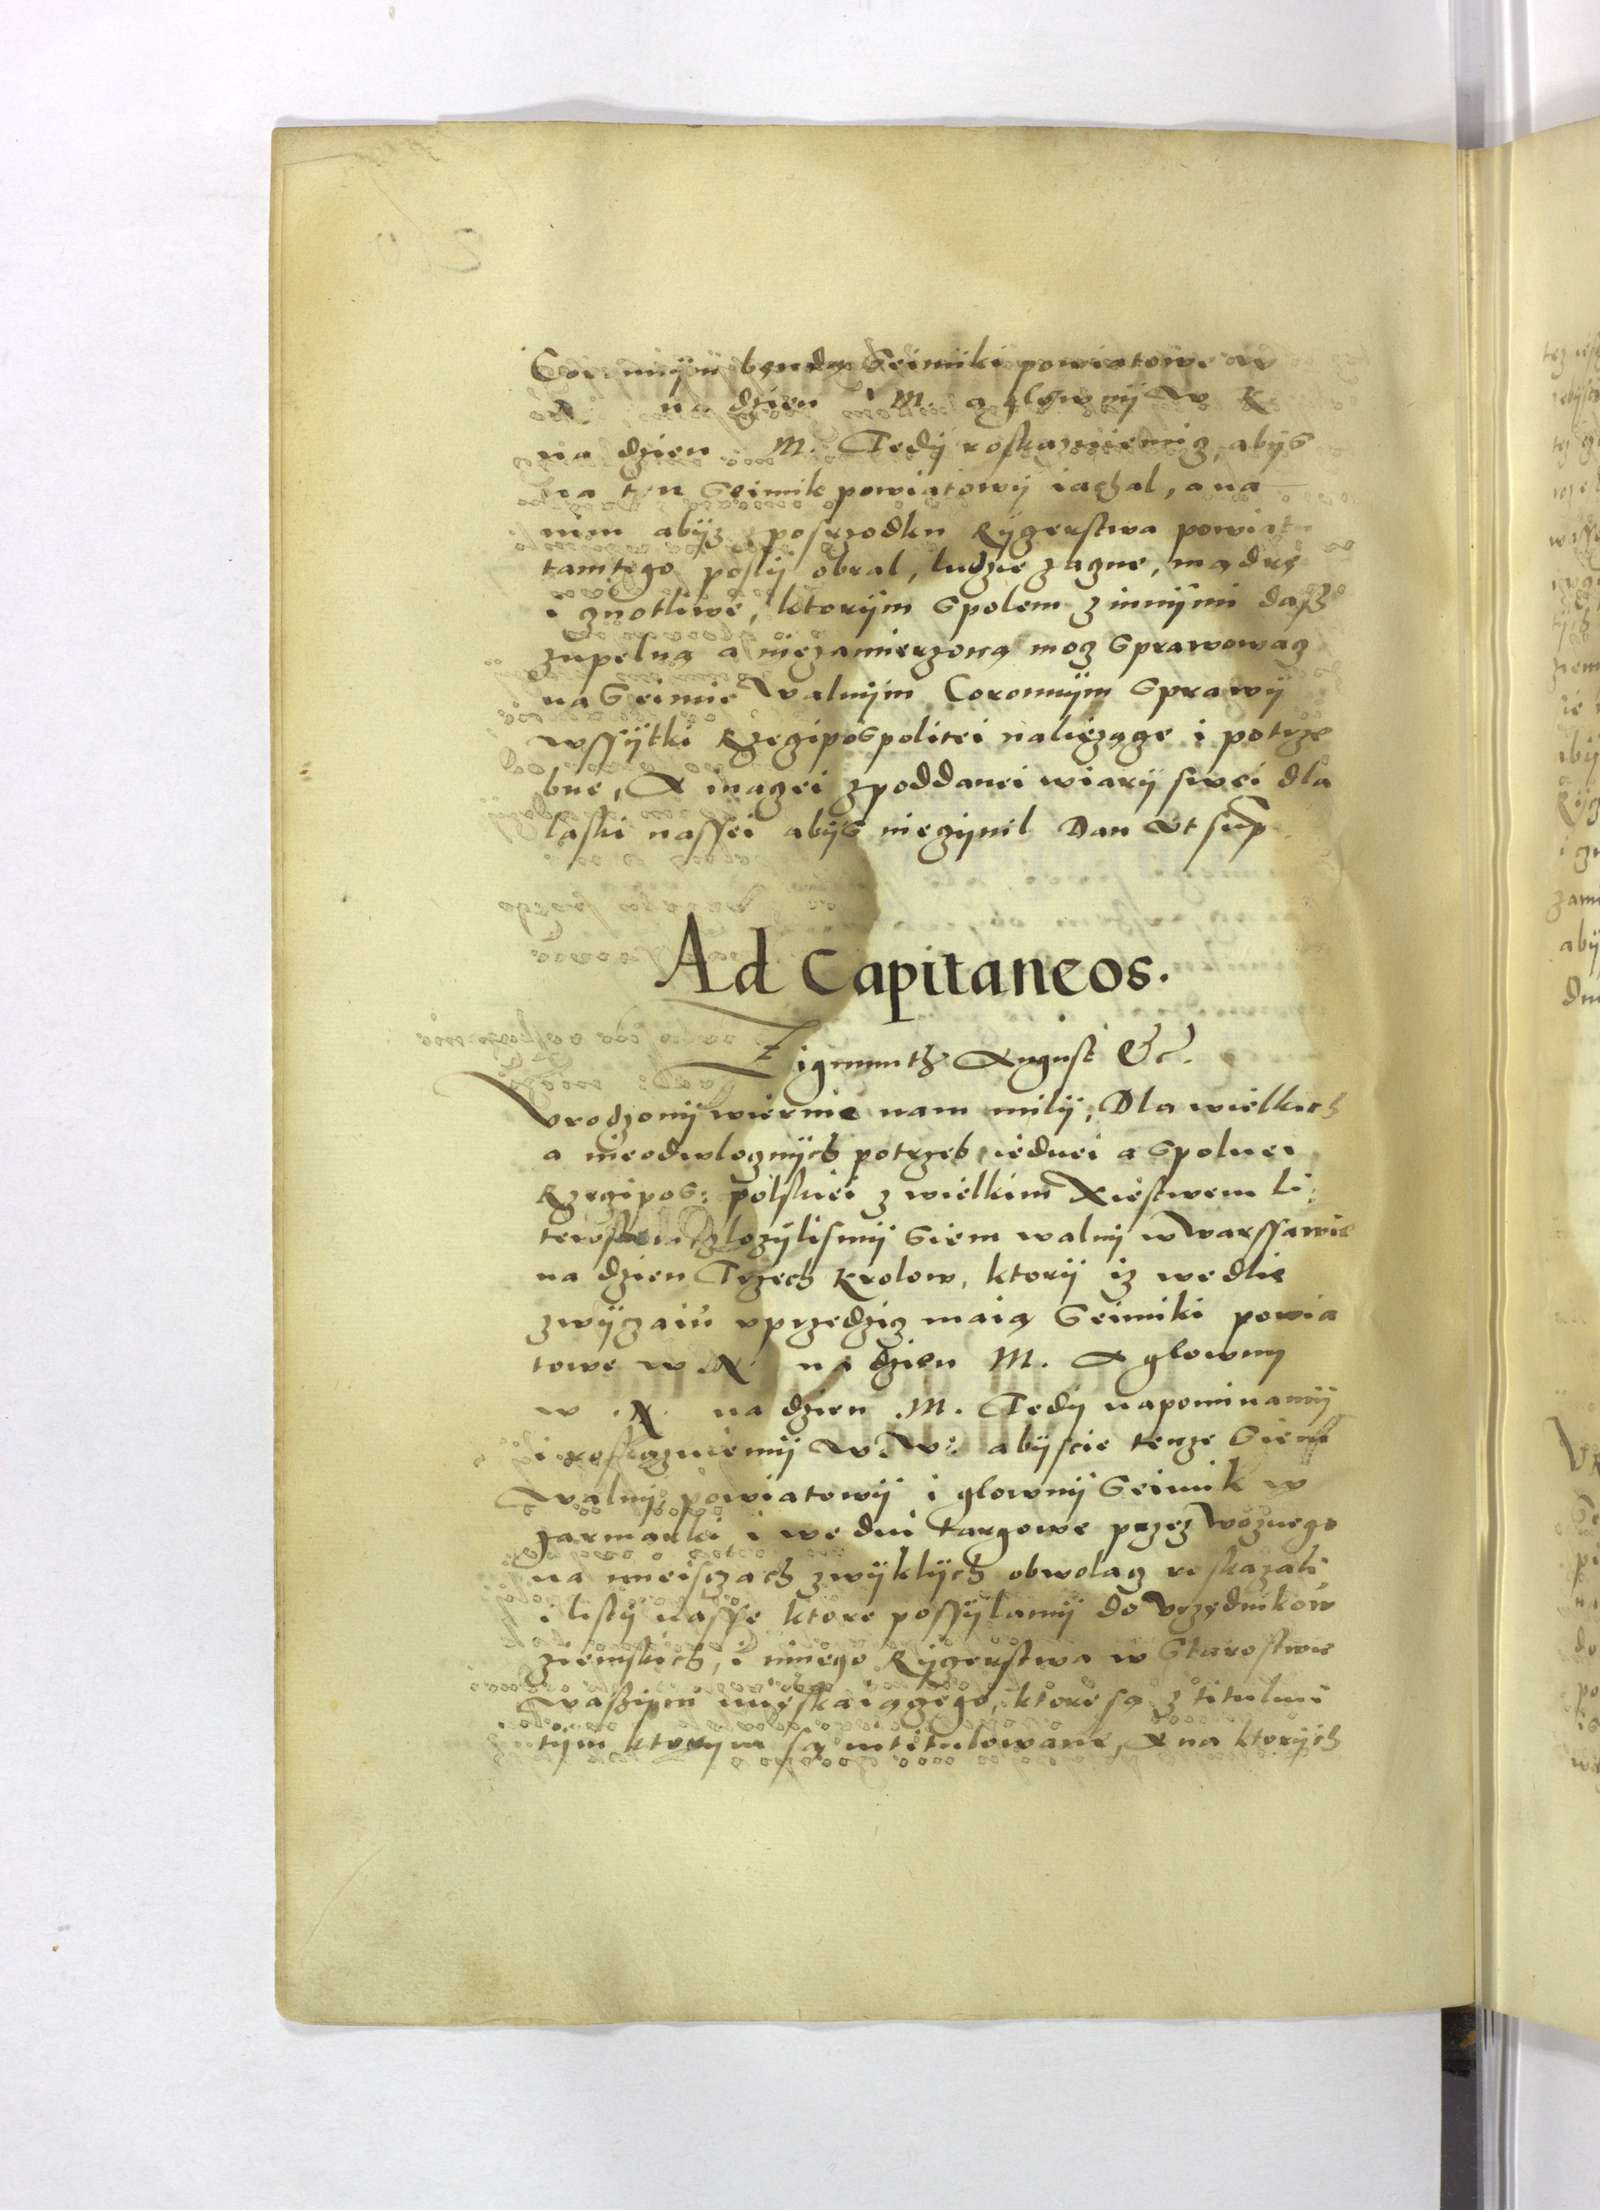 Coronnym bendą Seimiki powiatowe w
N na dzien M. a glowny w N
na dzien M. Tedy roskazuiemicz, abys
na ten Seimik powiatowy iachal, a na
nim abijz posrzodku Rycerstwa powiatu
tamtego posly obral, ludzie zacne, mądre
i cznotliwe, ktorym spolem z innymi dasz
zupelną a niezamierzoną moc sprawowacz
na Seimie Walnym Coronnym sprawy
wssytki Rzeczipospolitei naliezące i potrze
bne, A inaczei zpoddanei wiary swei dla
laski nassei abys nieczynil Dan Ut sup
Ad Capitaneos.
Zigmunth August &c.
Urodzony wiernie nam mily, Dla wielkich
a nieodwlocznych potrzeb iednei a spolnei
Rzeczipos: polskiei z wielkim Xiestwem Li:
tewskim zlozylismy Siem walny w Warssawie
na dzien Trzech Krolow, ktory iz wedlie
zwyczaiu uprzedzicz maią Seimiki powia
towe w N na dzien M. A glowny
w .N. na dzien .M. Tedy napominamy
i roskazuiemy W.W: abyscie tenze Siem
Walny, powiatowy i glowny Seimik w
Jarmarki i we dni targowe przez Woznego
na mieisczach zwyklych obwolacz roskazali
i listy nasse ktore possylamy do Urzędnikow
ziemskich, i innego Rycerstwa w Starostwie
waszym mieskaiącego, ktore są z titulmi
tym ktorym są intitulowane, A na ktorych